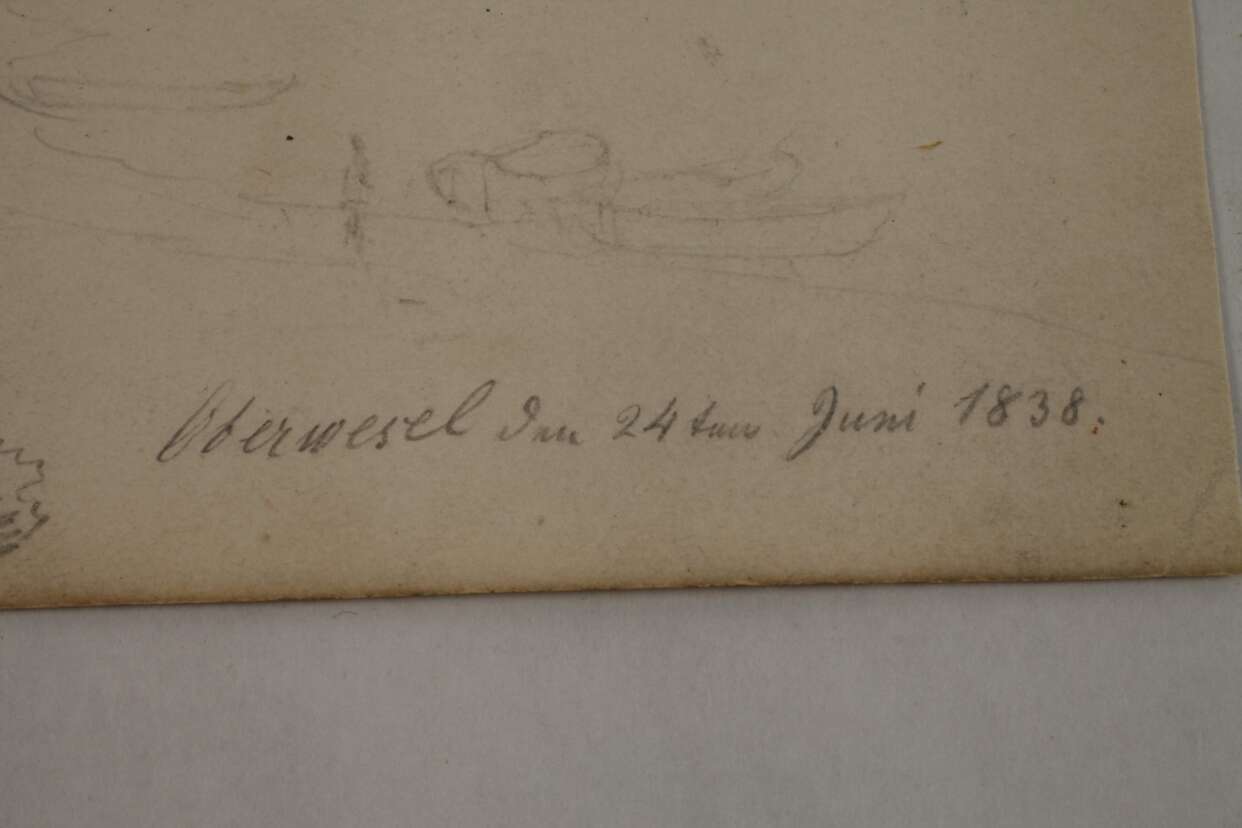 Oberwesel den 24ten Juni 1838.